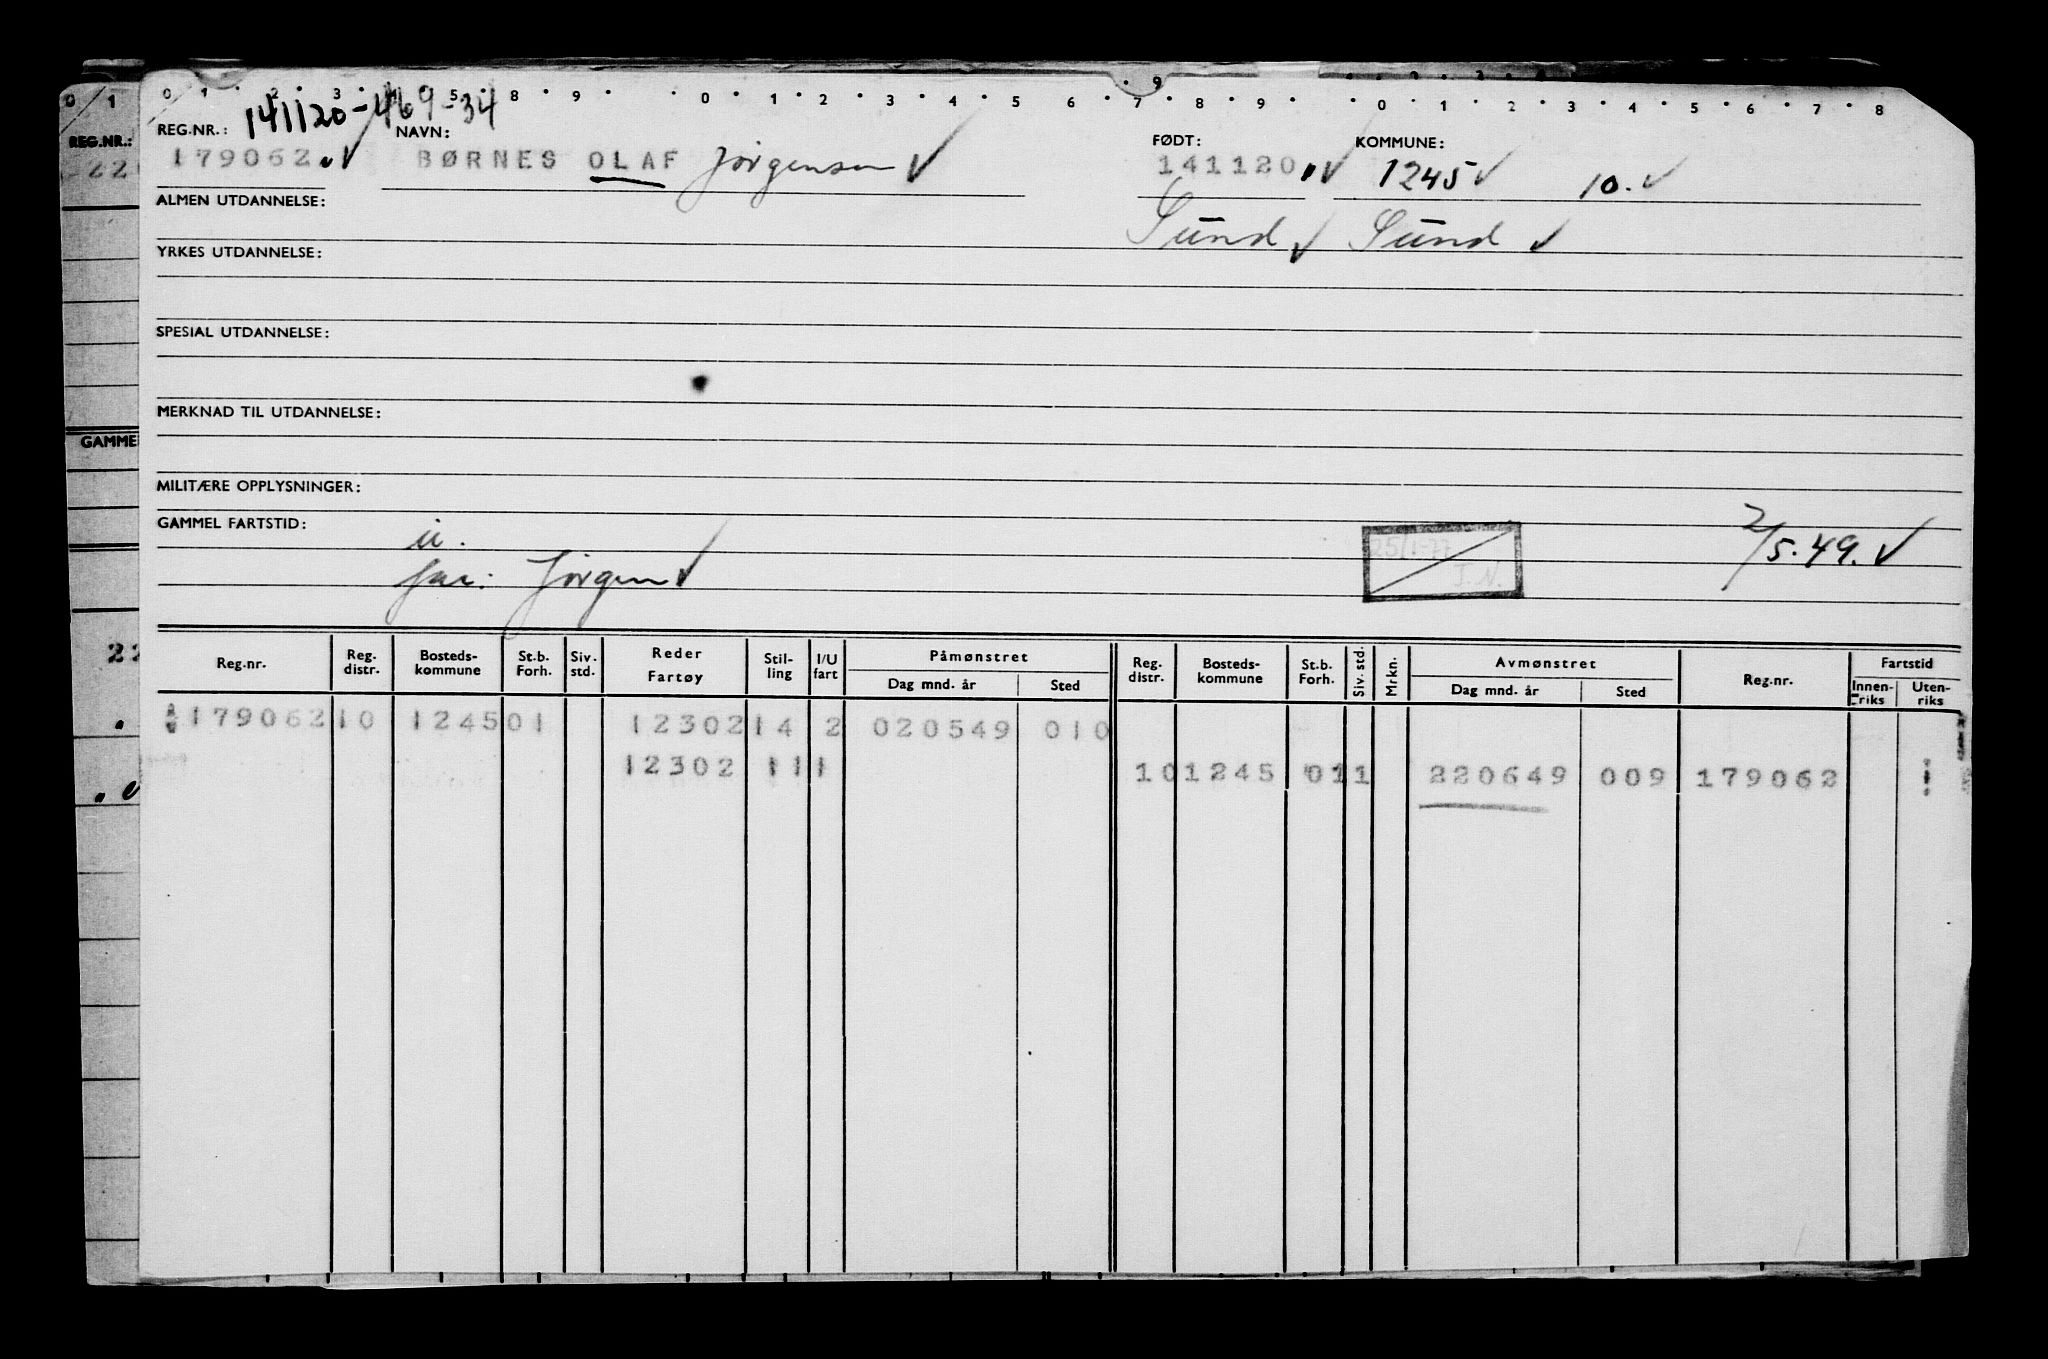 0 1 2 3 4 5 8 9 0 1 2 3 4 5 6 7 8 9 0 1 2 3 4 5 6 7 8
9
0 1
141120-469-34
REG.NR.: REG.NR.: NAVN: FØDT: KOMMUNE:
22 179062. ✓ BØRNES OLAF Jørgensen ✓ 141120. ✓ 1245 ✓ 10. ✓
ALMEN UTDANNELSE:
Sund ✓ Sund ✓
YRKES UTDANNELSE:
SPESIAL UTDANNELSE:
MERKNAD TIL UTDANNELSE:
GAMME
MILITÆRE OPPLYSNINGER:
GAMMEL FARTSTID: u. 25/1-77 2/5.49. ✓
far: Jørgen ✓ J.N.
Reg.nr. Reg. distr. Bosteds- kommune St.b. Forh. Siv. std. Reder Fartøy Stil- ling I/U fart Påmønstret Reg. distr. Bosteds- kommune St.b. Forh. Siv. std. Mrkn. Avmønstret Reg.nr. Fartstid
Dag mnd. år Sted Dag mnd. år Sted Innen- riks Uten- riks
22
179062 10 1245 01 12302 14 2 020549 010
12302 11 1 10 1245 01 1 220649 009 179062 1